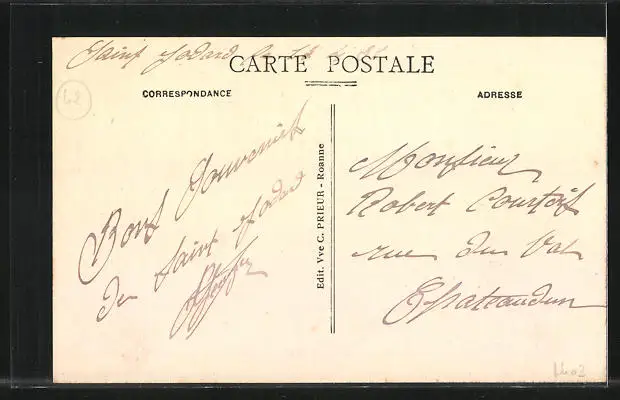 Saint Jodard le
CARTE POSTALE
42
CORRESPONDANCE
ADRESSE
Bons Souvenirs
de Saint Jodard
Edit. Vve C. PRIEUR - Roanne
Monsieur
Robert
rue du Val
Chateaudun